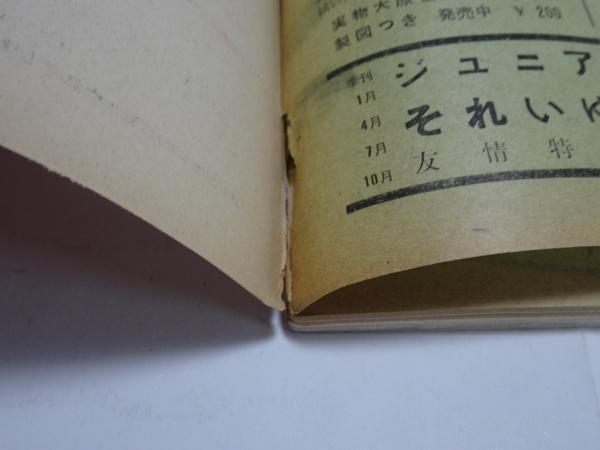 実物大
製図つき 発売中 ¥200
季刊
1月
4月
7月
10月
ジュニア
それい
友情特